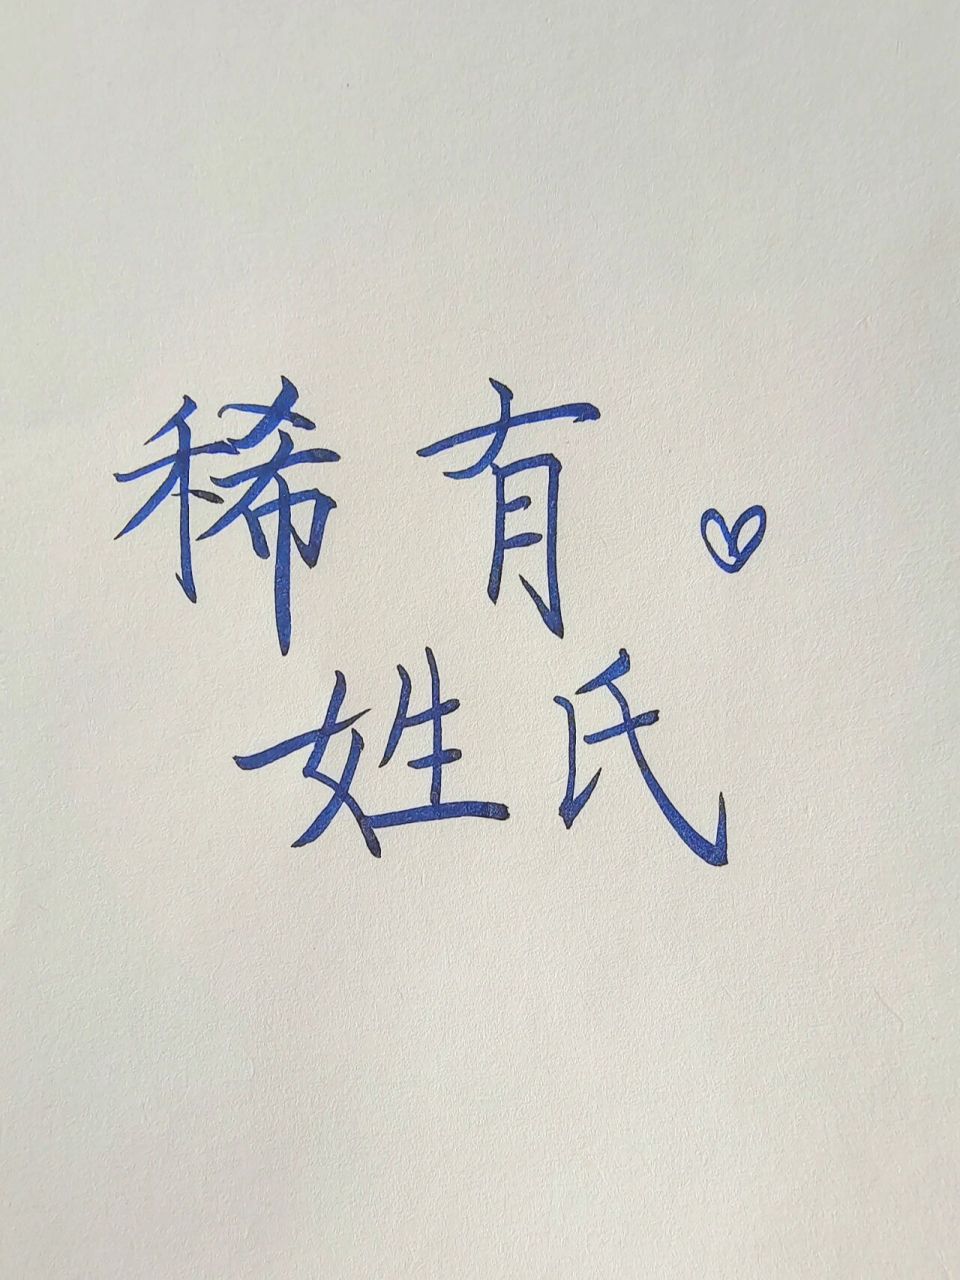 稀有
姓氏